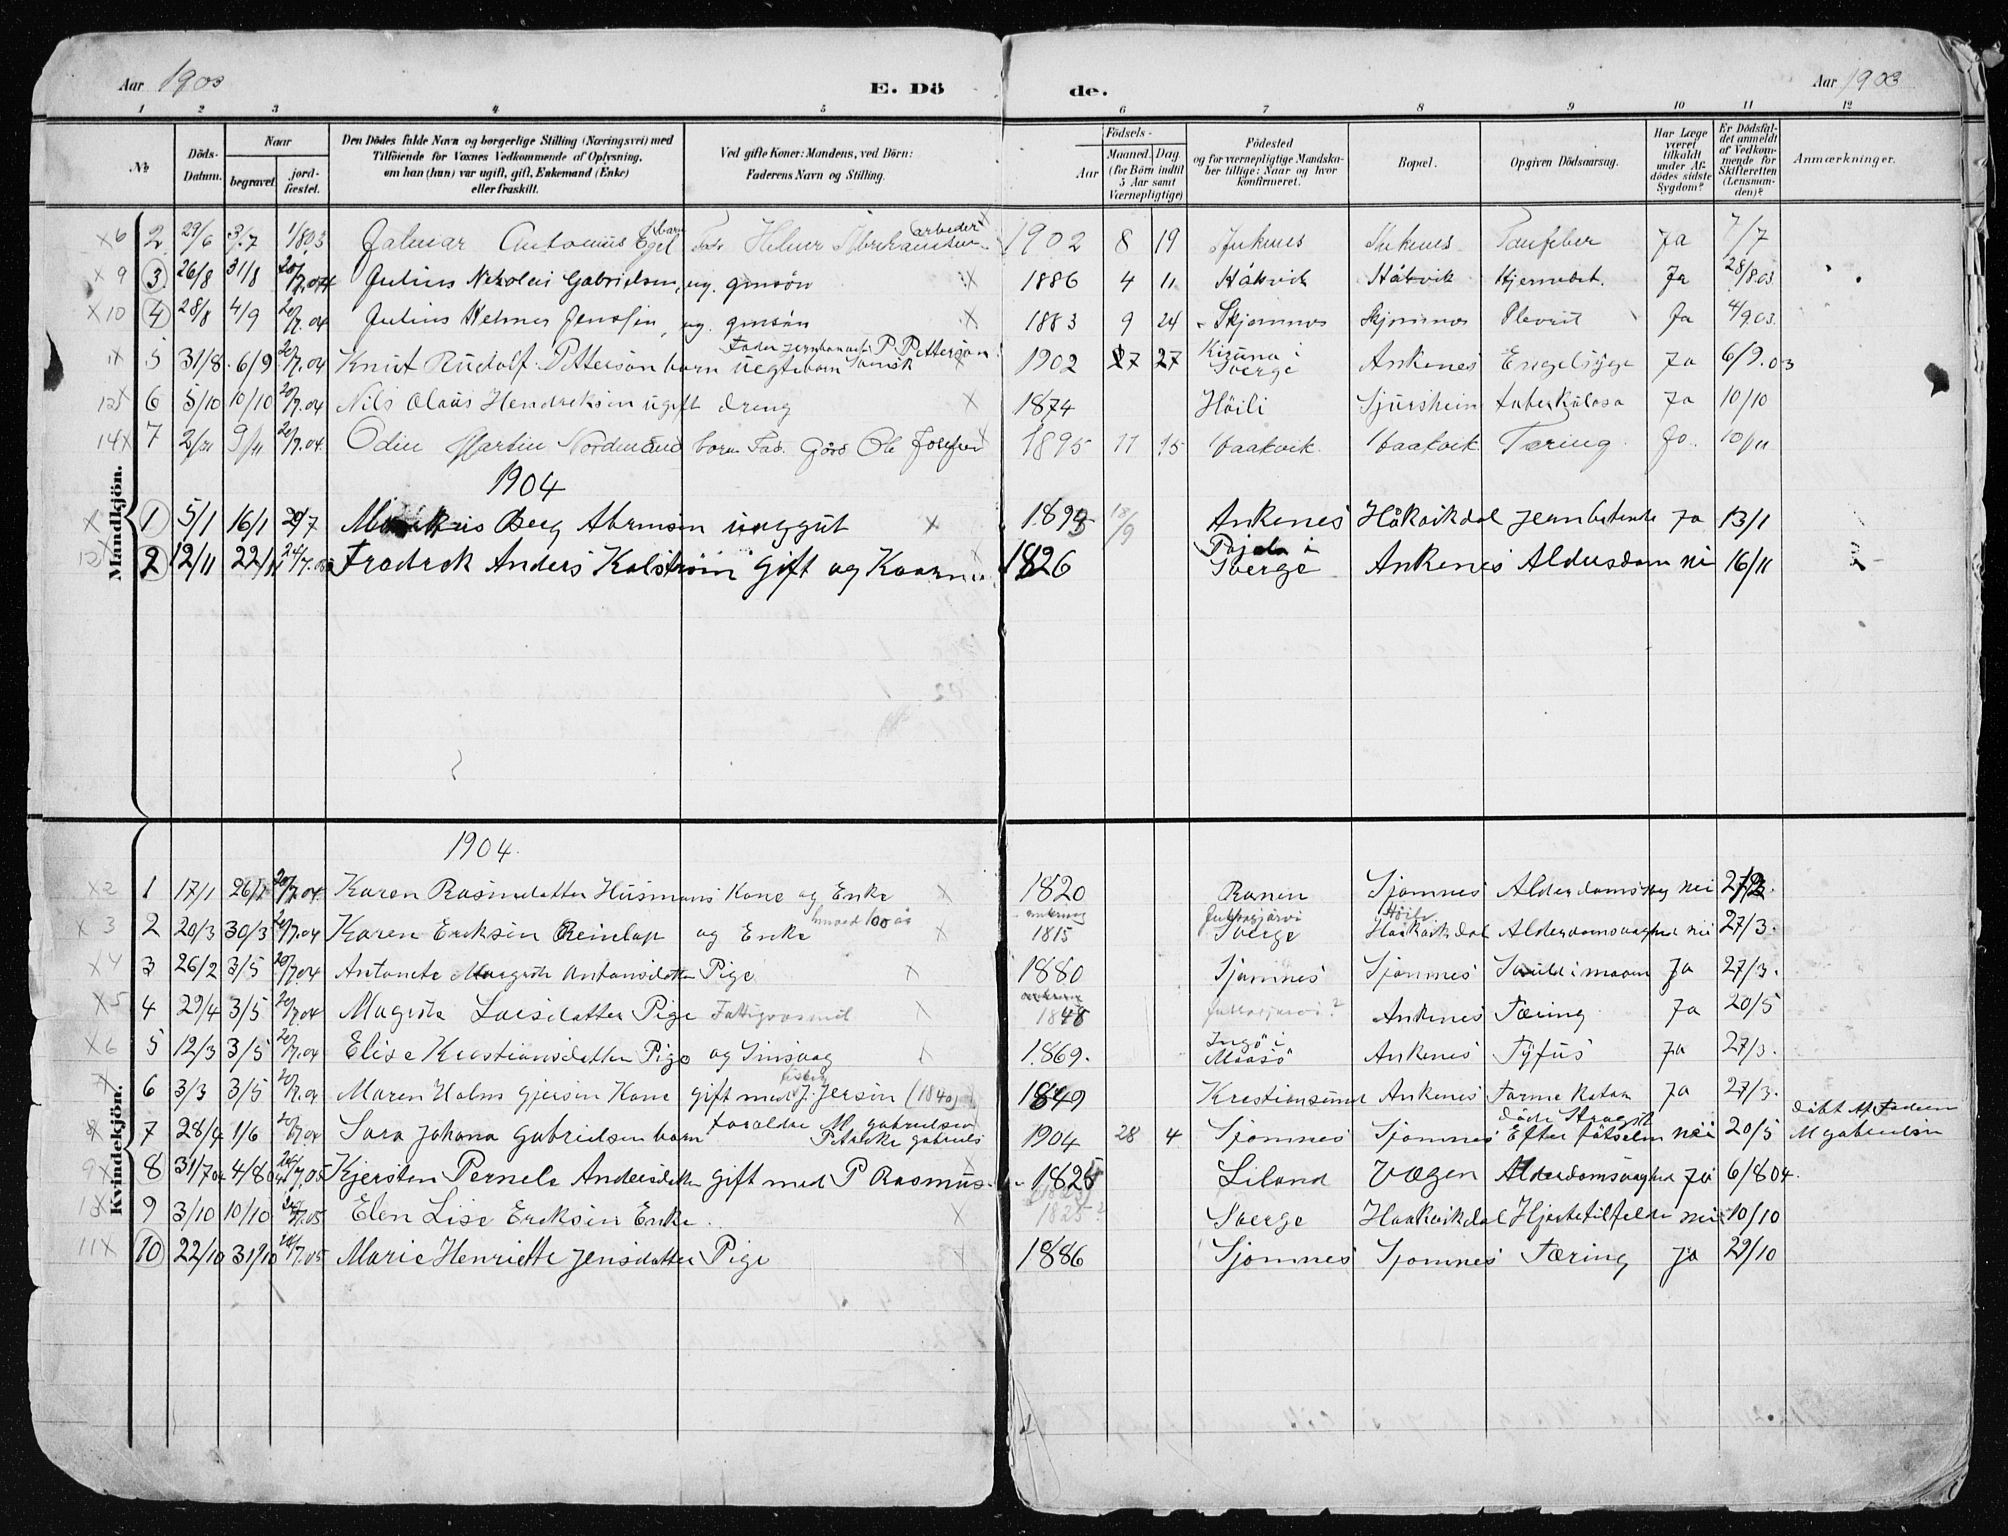 Aar 1903 E. Dö de. Aar 1903
1 2 3 4 5 6 7 8 9 10 11 12
№ Döds-Datum. Naar begravet. jordfæstet. Den Dödes fulde Navn og borgerlige Stilling (Næringsvei) med Tilföiende for Voxnes Vedkommende af Oplysning, om han (hun) var ugift, gift, Enkemand (Enke) eller fraskilt. Ved gifte Koner: Mandens, ved Börn: Faderens Navn og Stilling. Födsels- Aar Maaned. Dag. (for Börn indtil 5 Aar samt Værnepligtige) Födested og for værnepligtige Mandskaber tillige: Naar og hvor konfirmeret. Bopæl. Opgiven Dödsaarsag. Har Læge været tilkaldt under Afdödes sidste Sygdom? Er Dödsfaldet anmeldt af Vedkommende for Skifteretten (Lensmanden)? Anmærkninger.
Mandkjön.
x6 2 29/6 3/7 1/8 03 Jalmar Antonius Egt barn Fad Helmer arbeder x 1902 8 19 Ankenes Ankenes Ja 7/7
x 9 3 26/8 31/8 20/7.04 Julius Nekolai Gabrielsen, ug. gmsön x 1886 4 11 Håkvik Håkvik Hjernebet. Ja 28/8.03
x10 4 28/8 4/9 20/7.04 Julius Helmer Jensen, ug. gmsön x 1883 9 24 Skjomnes Skjomnes Plevrit Ja 4/9.03
5 31/8 6/9 20/7.04 Knut Rudolf Pettersön barn uegtebarn Svensk Fader jernbanearb P Petterson x 1902 7 27 Kiruna i Sverge Ankenes Engelsyge Ja 6/9.03
12x 6 5/10 10/10 20/7.04 Nils Olaus Hendreksen ugift dreng x 1874 Höili Sjursheim tuberkulosa Ja 10/10
14x 7 2/11 9/11 20/7.04 Odin Martin Nordmand barn Fad. Ole Josefsen 1895 11 15 Haakvik Haakvik Tæring Ja. 10/11
1904
1 5/1 16/1 20/7 Berg Abrmsen x 1893 18/9 Ankenes Håkvikdal Ja 13/1
2 12/11 22/11 Fredrek Anders Kalström gift og Kaarmann 1826 Pajala i Sverge Ankenes Aldersdom nei 16/11
Kvindekjön.
1904.
x2 1 17/1 26/1 20/7.04 Karen Rasmusdatter Husmans Kone og Enke x 1820 Ranen Sjomnes Alderdomssvag nei
x 3 2 20/3 30/3 20/7.04 Karen Eriksen Reinlap og Enke henved 100 år x omkring 1815 Jukkasjärvi Sverge Höili Haakvikdal Alderdomsvaghed nei 27/3.
x4 3 26/2 3/5 20/7.04 Antonete Margrete Antonsdatter Pige x 1880 Sjomnes Sjomnes Svuld i maven Ja 27/3.
x5 4 29/4 3/5 20/7.04 Magrete Larsdatter Pige Fattigvæsnet x omkring 1848 Jukkasjarvi? Ankenes Tæring Ja 20/5
x6 5 12/3 3/5 20/7.04 Elise Kristiansdatter Pige og Sinsvag x 1869. Ingö i Maasö Ankenes Tyfus Ja 27/3.
x 6 3/3 3/5 20/7.04 Maren Holm Gjersen Kone gift med fisker J. Jersön (1840) 1849 Kristiansund Ankenes Tarme Katar Ja 27/3.
7 28/4 1/6 20/7.04 Sara Johana Gabrielsen barn Foraldre M gabrielsen Petrikke gabriels 1904 28 4 Sjomnes Sjomnes döde Stragst Efter fötselen nei 20/5 döbt af Faderen M gabrielsen
9x 8 31/7 04 4/8 04 20/7.05 Kjersten Pernele Andersdatter gift med P Rasmus 1825 Liland Vægen Alderdomsvaghed Ja 6/8 04.
13x 9 3/10 10/10 20/7.05 Elen Lise Eriksen Enke. x 1825? Sverge Haakvikdal Hjertetilfelde nei 10/10
11x 10 22/10 31/10 20/7.05 Marie Henriette Jensdatter Pige x 1886 Sjomnes Sjomnes Tæring Ja 29/10